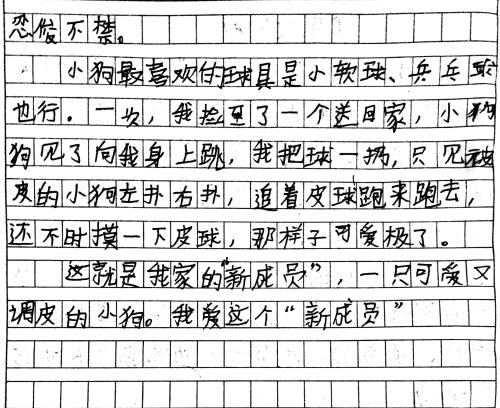 忍俊不禁。
小狗最喜欢的球具是小软球、兵乓球
也行。一次，我捡到了一个送回家，小狗
狗见了向我身上跳，我把球一扔，只见被
皮的小狗左扑右扑，追着皮球跑来跑去，
还不时摸一下皮球，那样子可爱极了。
这就是我家的“新成员”，一只可爱又
调皮的小狗。我爱这个“新成员”